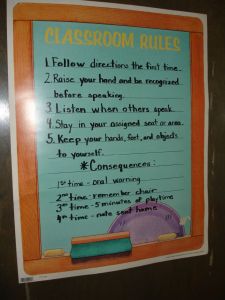 CLASSROOM RULES
1. Follow directions the first time.
2. Raise your hand and be recognized
before speaking.
3. Listen when others speak.
4. Stay in your assigned seat or area.
5. Keep your hands, feet, and objects
to yourself.
*Consequences:
1st time - oral warning
2nd time - remember chair
3rd time - 5 minutes of playtime
4th time - note sent home